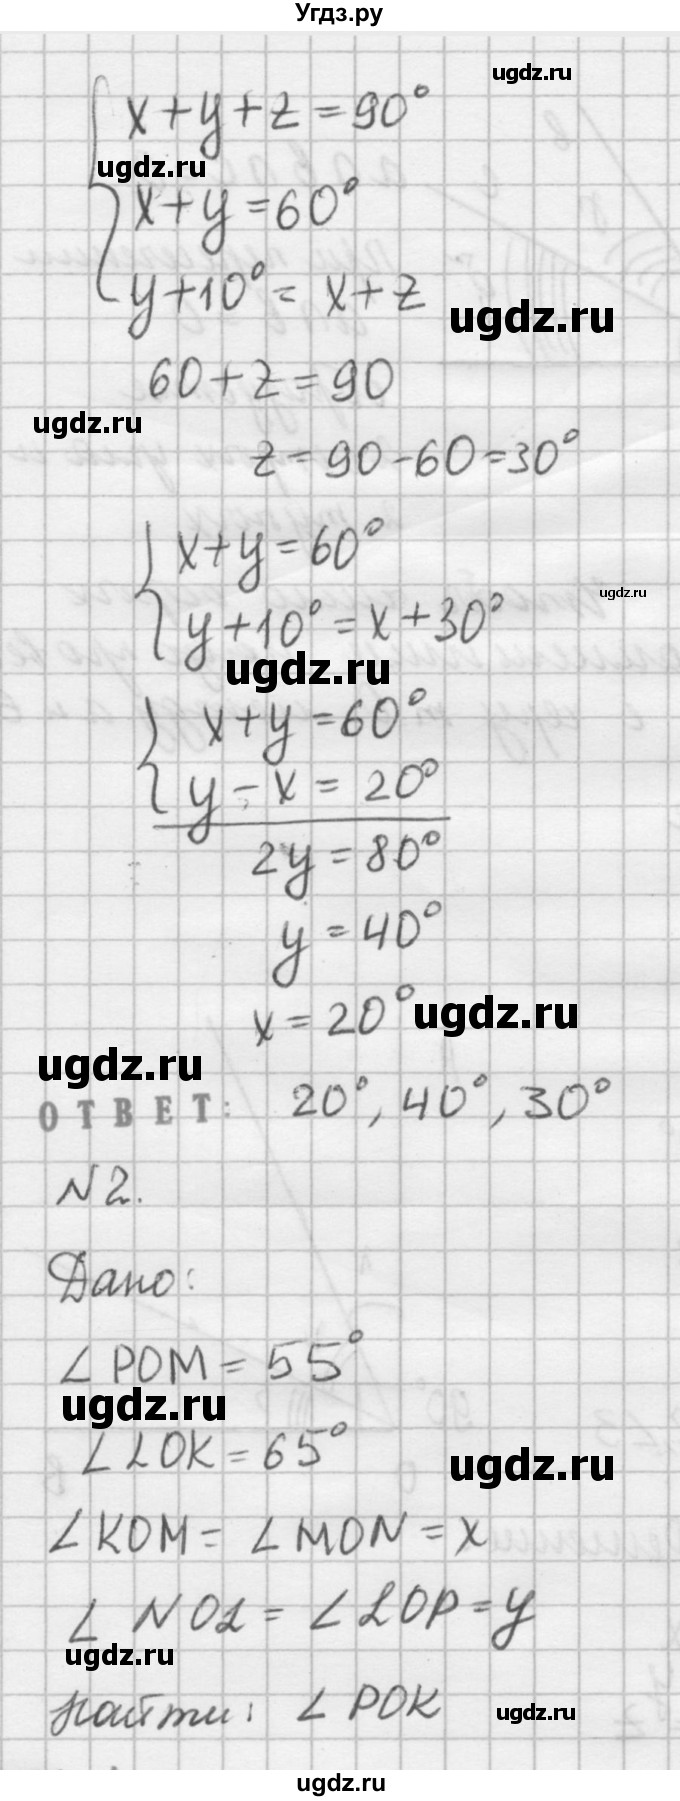 Угдз.ру
ugdz.ru
x+y+z=90°
ugdz.ru
x+y=60°
y+10°= x+z
ugdz.ru
60+z=90
ugdz.ru
z=90-60=30°
x+y=60°
ugdz.ru
y+10°=x+30°
ugdz.ru
x+y=60°
y-x= 20°
2y=80°
y=40°
x=20°
ugdz.ru
ugdz.ru
ОТВЕТ: 20°, 40°, 30°
N2.
Дано:
∠POM=55°
ugdz.ru
∠LOK=65°
ugdz.ru
∠KOM=∠MON=x
∠NOL=∠LOP=y
ugdz.ru
Найти: ∠POK
ugdz.ru
ugdz.ru